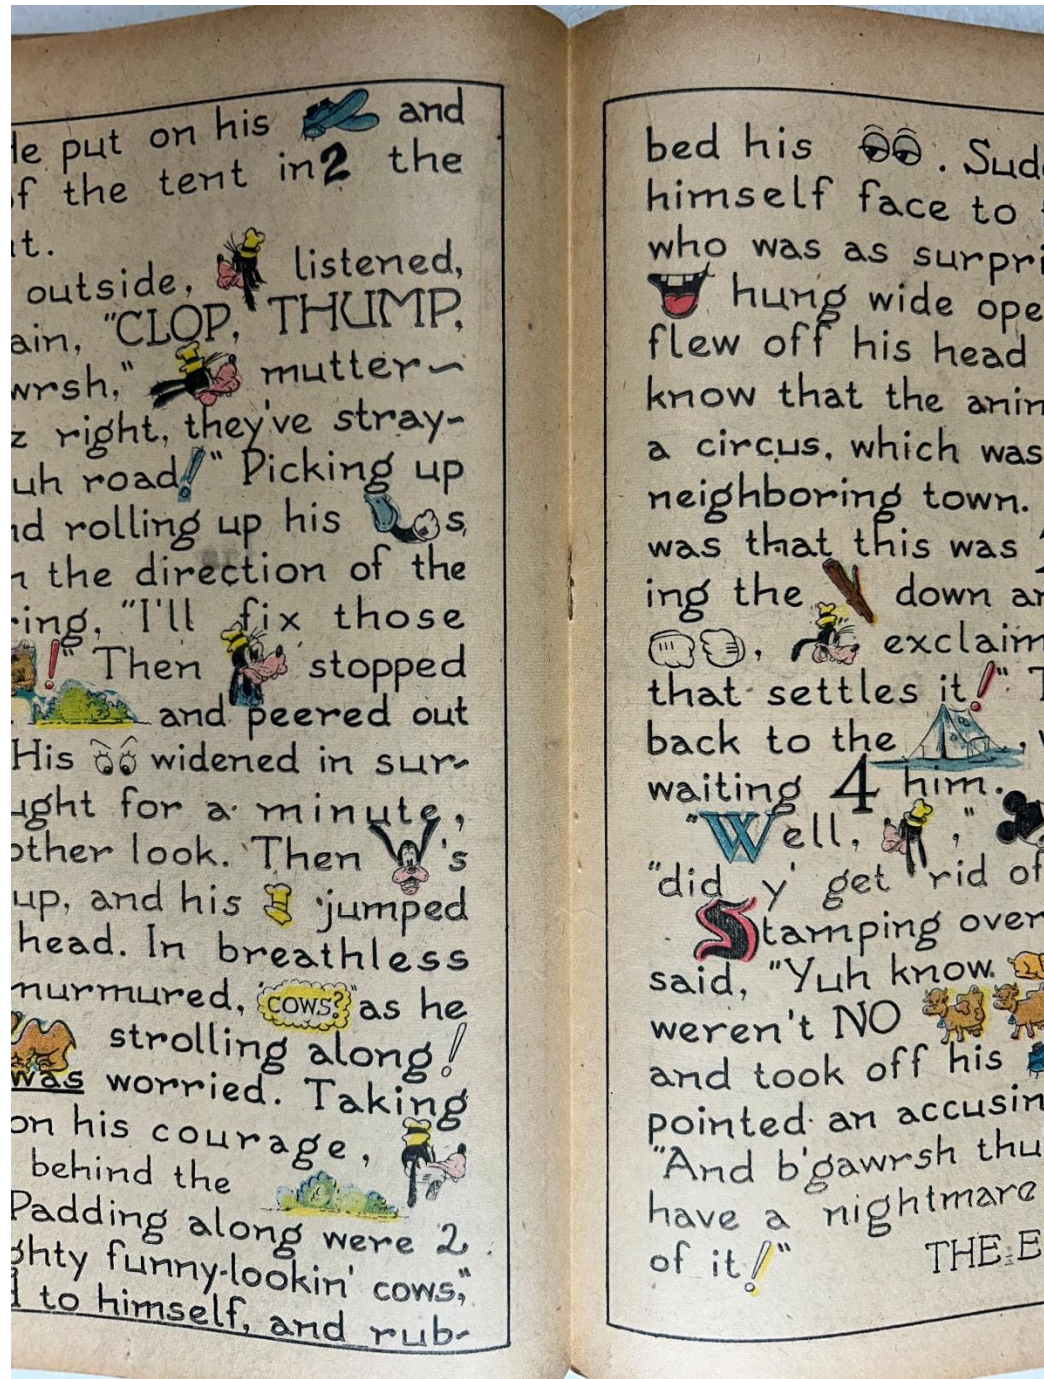 le put on his and
of the tent in 2 the
outside, listened,
"CLOP, THUMP,
mutter-
right, they've stray-
uh road!" Picking up
rolling up his s,
the direction of the
"I'll fix those
!" Then stopped
and peered out
His widened in sur-
for a minute,
look. Then 's
up, and his jumped
head. In breathless
murmured, "COWS?" as he
strolling along!
was worried. Taking
on his courage,
behind the
Padding along were 2
funny-lookin' cows,"
to himself, and rub-
bed his .
himself face to
who was as
hung wide
flew off his head
know that the
a circus, which was
neighboring town.
was that this was
ing the down
,
that settles it!"
back to the ,
waiting 4 him.
"Well, ,"
"did y' get rid of
Stamping over
said, "Yuh know
weren't NO
and took off his
pointed an
"And b'gawrsh
have a nightmare
of it!"
THE